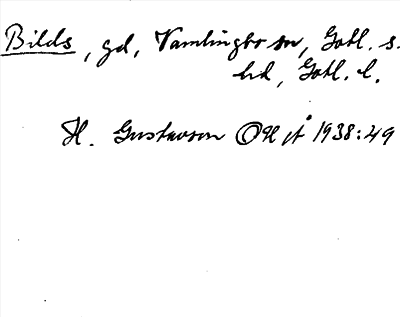 Bilds, gd, Vamlingbo sn, Gotl. s.
hd, Gotl. l.
H. Gustavson OH fr 1938:49